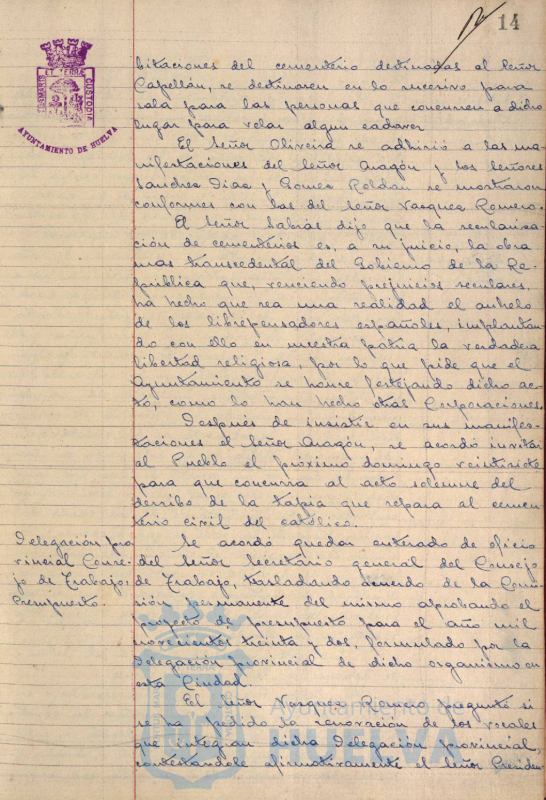 14
PORTUS MARIS ET TERRÆ CUSTODIA
AYUNTAMIENTO DE HUELVA
bitaciones del cementerio destinadas al Señor
Capellán, se destinasen en lo sucesivo para
sala para las personas que concurren a dicho
lugar para velar algun cadaver
El Señor Oliveira se adhirió a las ma-
nifestaciones del Señor Aragón y los Señores
Sanchez Diaz y Gomez Roldán se mostraron
conformes con las del Señor Vasquez Romero.
El Señor Sabrás dijo que la seculariza-
ción de cementerios es, a su juicio, la obra
mas transcedental del Gobierno de la Re-
pública que, venciendo prejuicios seculares,
ha hecho que sea una realidad el anhelo
de los librepensadores españoles, implantan-
do con ello en nuestra patria la verdadera
libertad religiosa, por lo que pide que el
Ayuntamiento se honre festejando dicho ac-
to, como lo han hecho otras Corporaciones.
Después de insistir en sus manifes-
taciones el Señor Aragón, se acordó invitar
al Pueblo el próximo domingo veintisiete
para que concurra al acto solemne del
derribo de la tapia que separa al cemen-
terio civil del católico.
Delegación pro-
vincial Conse-
jo de Trabajo,
Presupuesto.
Se acordó quedar enterado de oficio
del Señor Secretario general del Consejo
de Trabajo, trasladando acuerdo de la Comi-
sión permanente del mismo aprobando el
proyecto de presupuesto para el año mil
novecientos treinta y dos, formulado por la
Delegación provincial de dicho organismo en
esta Ciudad.
El Señor Vasquez Romero preguntó si
se ha pedido la renovación de los vocales
que integran dicha Delegación provincial,
contestándole afirmativamente el Señor Presiden-
Ayuntamiento de
HUELVA